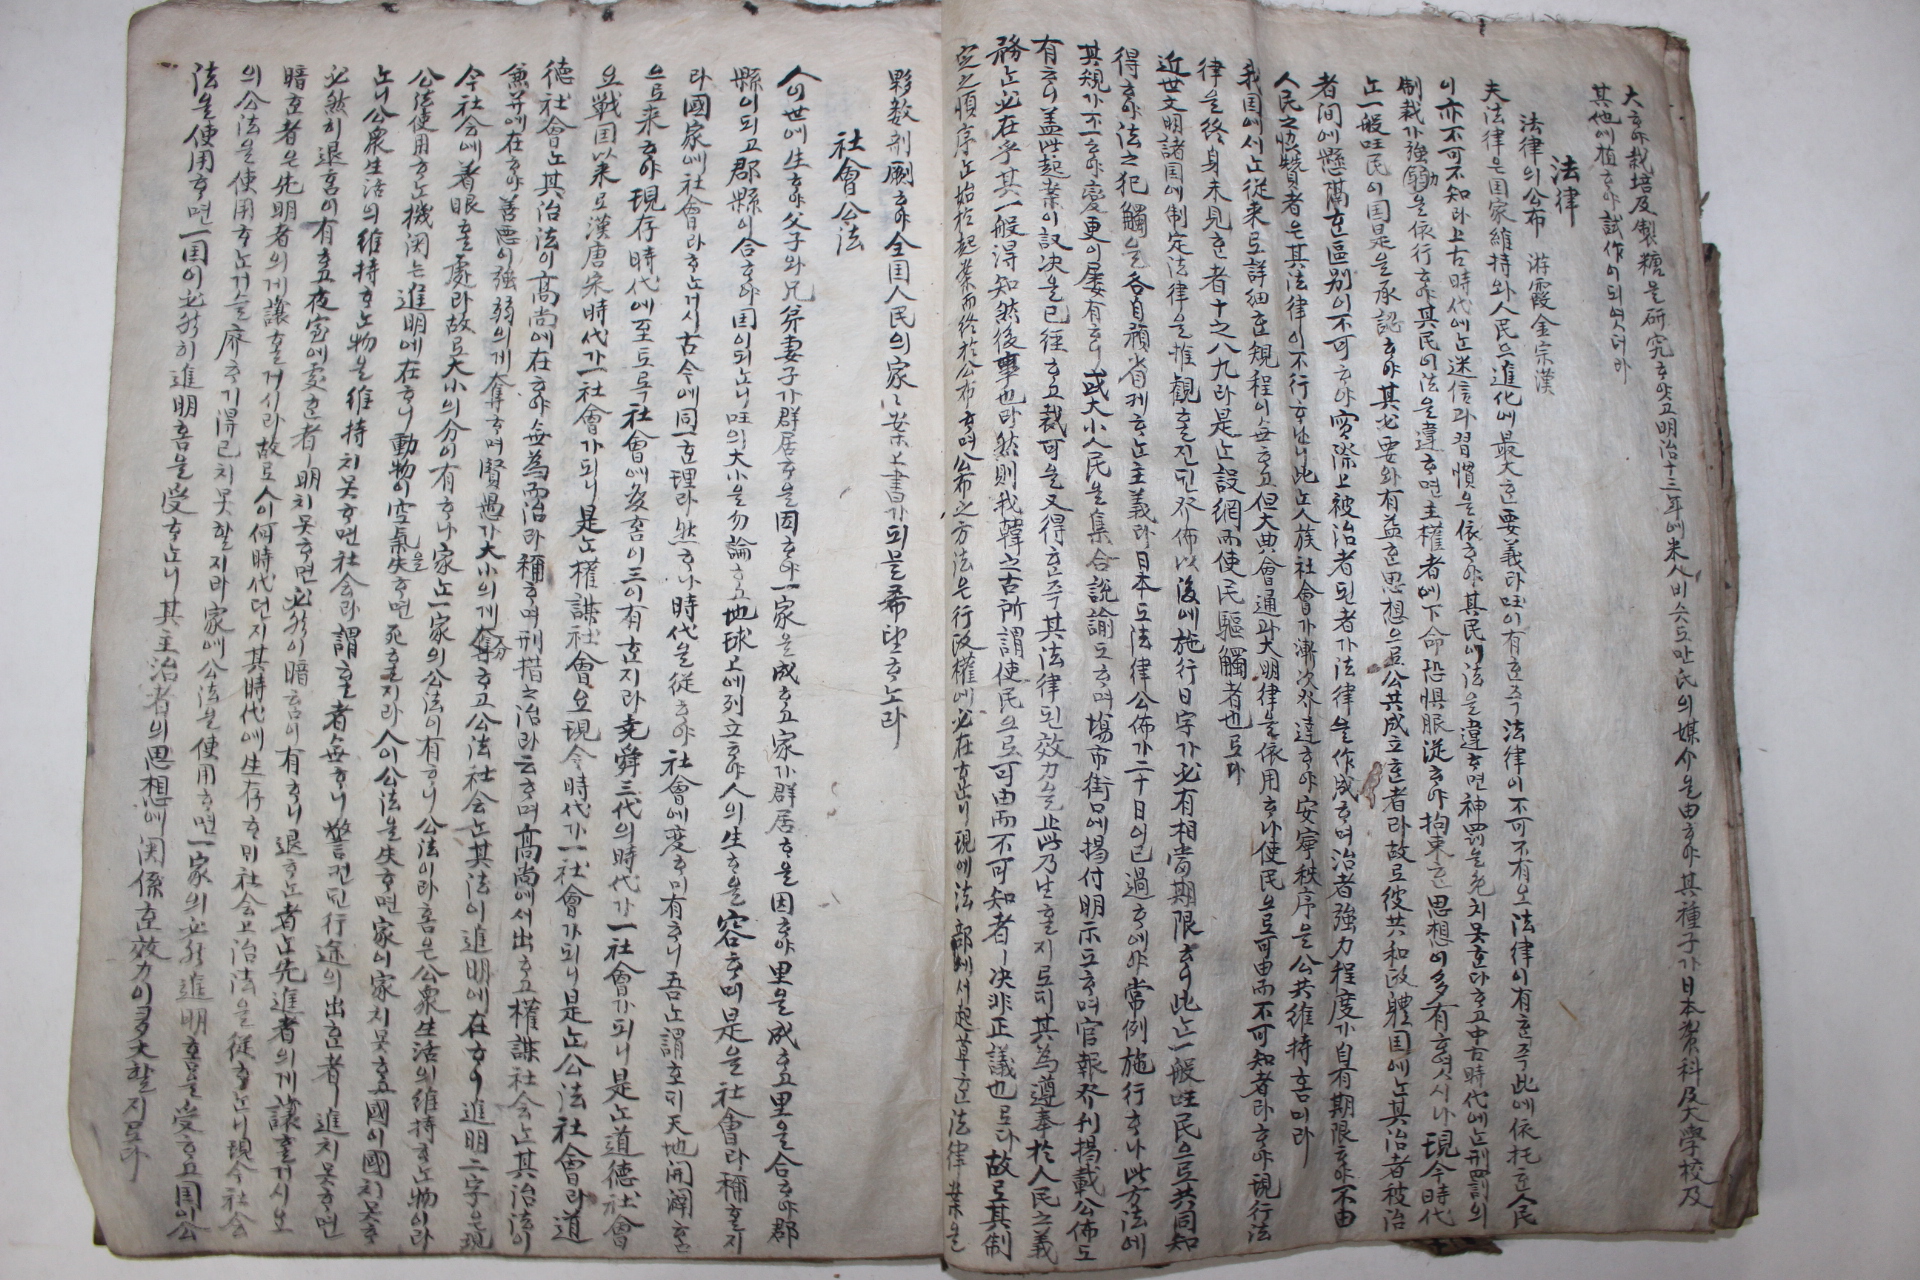 大ᄒᆞ야栽培及製糖을硏究ᄒᆞ얏고明治十三年에米人비스도만氏의媒介을由ᄒᆞ야其種子가日本製科及大學校及
其他에植ᄒᆞ야試作이되엿더라
法律
法律의公布 游霞金宗漢
夫法律은国家維持와人民으進化에最大ᄒᆞᆫ要義라旺이有ᄒᆞᆫ즉法律이不可不有오法律이有ᄒᆞᆫ즉此에依托ᄒᆞᆫ人民
이亦不可不知라上古時代에ᄂᆞᆫ迷信과習慣을依ᄒᆞ야其民에法을違ᄒᆞ면神罰을免치못ᄒᆞᆫ다ᄒᆞ고中古時代에ᄂᆞᆫ刑罰의
制裁가強弱을依行ᄒᆞ야其民이法을違ᄒᆞ면主權者에下命恐惧服従ᄒᆞ야拘束ᄒᆞᆫ思想이多有ᄒᆞ엿시나現今時代
ᄂᆞᆫ一般旺民이国是을承認ᄒᆞ야其必要와有益ᄒᆞᆫ思想으로公共成立ᄒᆞᆫ者라故로彼共和政體国에ᄂᆞᆫ其治者被治
者間에懸隔ᄒᆞᆫ區别이不可ᄒᆞ야實際上被治者된者가法律을作成ᄒᆞ며治者強力程度가自有期限ᄒᆞ야不由
人民之快贊者은其法律이不行ᄒᆞᄂᆞ니此ᄂᆞᆫ人族社會가漸次發達ᄒᆞ야安寧秩序을公共維持홈미라
我国에서ᄂᆞᆫ従来로詳細ᄒᆞᆫ規程이無ᄒᆞ고但大典會通과大明律을依用ᄒᆞ나使民으로可由而不可知者라ᄒᆞ야現行法
律을終身未見ᄒᆞᆫ者十之八九라是ᄂᆞᆫ設網而使民驅觸者也로다
近世文明諸国에制定法律을推觀ᄒᆞᆯ진ᄃᆡ發佈以後에施行日字가必有相當期限ᄒᆞ니此ᄂᆞᆫ一般旺民으로共同知
得ᄒᆞ야法之犯觸을各自顧省케ᄒᆞᄂᆞᆫ主義라日本도法律公佈가二十日이已過ᄒᆞ여야常例施行ᄒᆞ나此方法에
其規가不一ᄒᆞ야變更이屡有ᄒᆞ니或大小人民을集合說諭도ᄒᆞ며場市街口에揭付明示도ᄒᆞ며官報發刊揭載公佈도
有ᄒᆞ니盖此起業이議决을已經ᄒᆞ고裁可을又得ᄒᆞᆫ즉其法律된效力은止此乃生ᄒᆞᆯ지로ᄃᆡ其為遵奉於人民之義
務ᄂᆞᆫ必在乎其一般得知然後事也라然則我韓之古所謂使民으로可由而不可知者ㅣ决非正議也로다故로其制
定之順序ᄂᆞᆫ始於起業而終於公布ᄒᆞ며公布之方法은行政權에必在ᄒᆞ니現에法部에서起草ᄒᆞᆫ法律案을
夥数剞劂ᄒᆞ야全国人民의家〻案上書가되믈希望ᄒᆞ노라
社會公法
人이世에生ᄒᆞ야父子와兄弟妻子가群居ᄒᆞ을因ᄒᆞ야一家을成ᄒᆞ고家가群居ᄒᆞ을因ᄒᆞ야里을成ᄒᆞ고里을合ᄒᆞ야郡
縣이되고郡縣이合ᄒᆞ야国이되ᄂᆞ니旺의大小을勿論ᄒᆞ고地球上에列立ᄒᆞ야人의生ᄒᆞ을容ᄒᆞ며是을社會라稱ᄒᆞᆯ지
라國家에社會라ᄒᆞᄂᆞᆫ거시古今에同一ᄒᆞᆫ理라然ᄒᆞ나時代을從ᄒᆞ야社會에変ᄒᆞ미有ᄒᆞ니吾ᄂᆞᆫ謂호ᄃᆡ天地開闢홈
으로来ᄒᆞ야現存時代에至토록社會에変홈이三이有ᄒᆞᆫ지라堯舜三代의時代가一社會가되니是ᄂᆞᆫ道德社會
요戦国以来로漢唐宋時代가一社會가되니是ᄂᆞᆫ權謀社會요現今時代가一社會가되니是ᄂᆞᆫ公法社會라道
德社會ᄂᆞᆫ其治法이高尚에在ᄒᆞ야無為而治라稱ᄒᆞ며刑措之治라云ᄒᆞ며高尚에서出ᄒᆞ고權謀社会ᄂᆞᆫ其治法이
兼并에在ᄒᆞ야善惡이強弱의게奪ᄒᆞ며賢愚가大小의게分ᄒᆞ고公法社会ᄂᆞᆫ其法이進明에在ᄒᆞ니進明二字은現
今社会에着眼ᄒᆞᆯ處라故로大小의分이有ᄒᆞ나家ᄂᆞᆫ一家의公法이有ᄒᆞ니公法이라홈은公衆生活의維持ᄒᆞᄂᆞᆫ物이라
公法使用ᄒᆞᄂᆞᆫ機関는進明에在ᄒᆞ니動物이空氣을失ᄒᆞ면死ᄒᆞᆯ지라人이公法을失ᄒᆞ면家이家치못ᄒᆞ고國이國치못ᄒᆞ
ᄂᆞ니公衆生活의維持ᄒᆞᄂᆞᆫ物을維持치못ᄒᆞ면社会라謂ᄒᆞᆯ者無ᄒᆞ니譬컨ᄃᆡ行途의出ᄒᆞᆫ者ㅣ進치못ᄒᆞ면
必然히退홈이有ᄒᆞ고夜室에處ᄒᆞᆫ者ㅣ明치못ᄒᆞ면必然이暗홈이有ᄒᆞ니退ᄒᆞᄂᆞᆫ者ᄂᆞᆫ先進者의게讓ᄒᆞᆯ거시오
暗ᄒᆞᆫ者은先明者의게讓ᄒᆞᆯ거시라故로人이何時代던지其時代에生存ᄒᆞ믹社会上治法을從ᄒᆞᄂᆞ니現今社会
의公法을使用ᄒᆞᄂᆞᆫ거슬廢ᄒᆞ기得已치못ᄒᆞᆯ지라家에公法을使用ᄒᆞ면一家의必然進明홈을受ᄒᆞ고国이公
法을使用ᄒᆞ면一国이必然히進明홈을受ᄒᆞᄂᆞ니其主治者의思想에関係ᄒᆞᆫ效力이多大ᄒᆞᆯ지로다